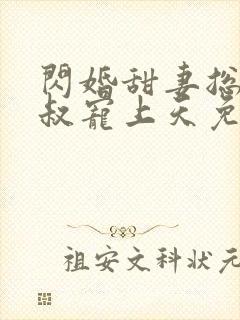 閃婚甜妻總
叔寵上天免
祖安文科状元